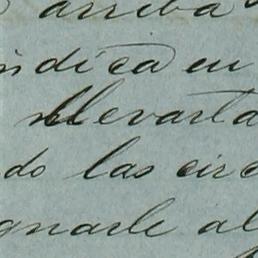 arriba
indica en
llevarla
do las circ
gnarle al